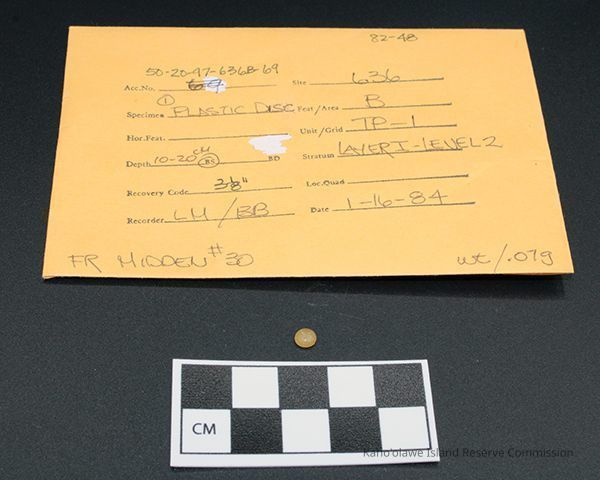 82-48
50-20-97-636B-69
Acc.No. 69 Site 636
① Specimen PLASTIC DISC Feat/Area B
Hor.Feat. Unit/Grid TP-1
Depth 10-20 CM BS BD Stratum LAYER I-LEVEL 2
Recovery Code 3/8" Loc.Quad
Recorder LM/BB Date 1-16-84
FR MIDDEN #30 wt/.07g
CM
Kaho'olawe Island Reserve Commission